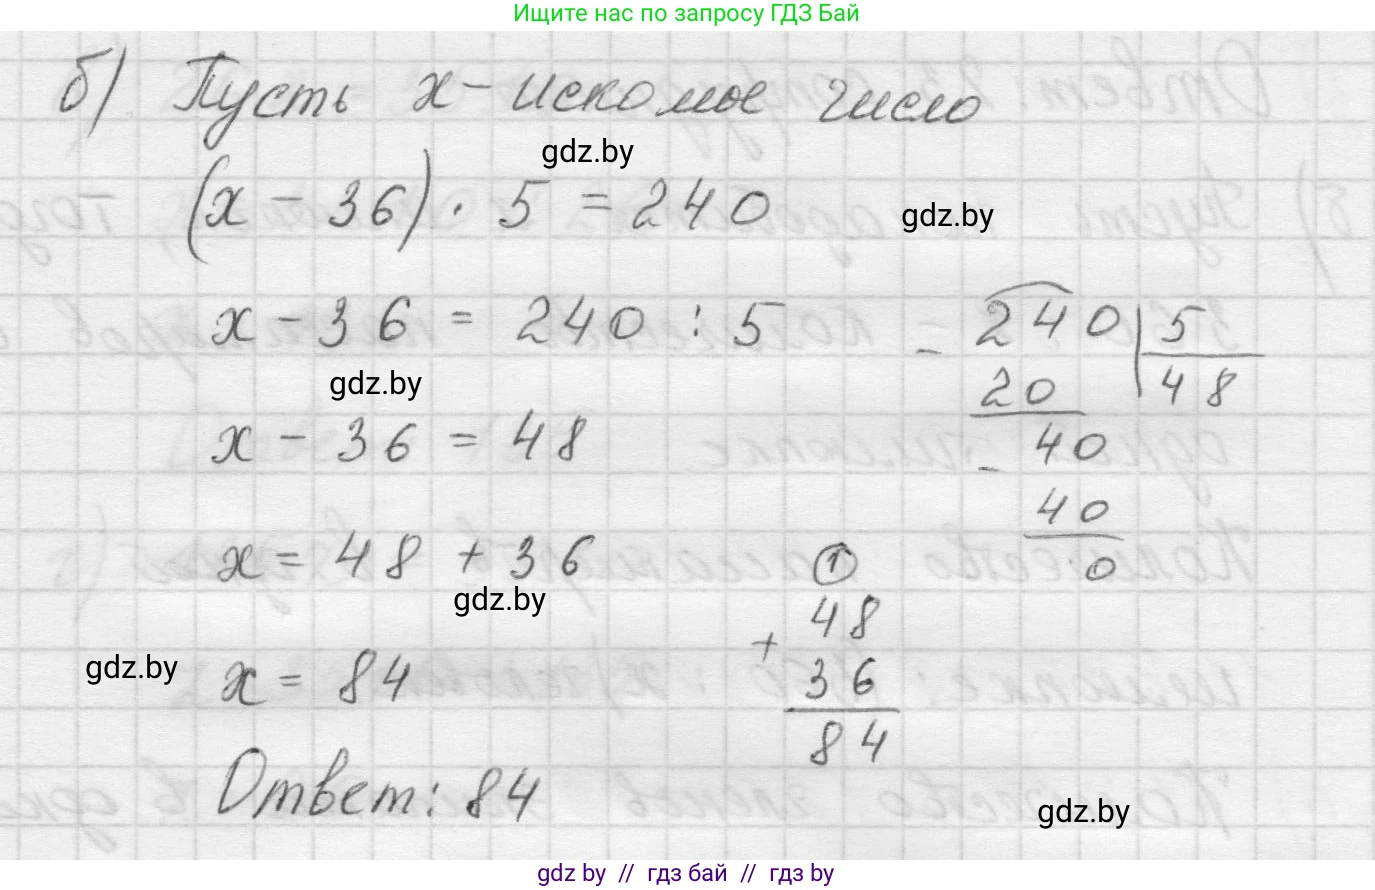 Ищите нас по запросу ГДЗ Бай
б) Пусть x - искомое число
gdz.by
(x - 36) · 5 = 240
gdz.by
x - 36 = 240 : 5
- 240 5
20 48
gdz.by
x - 36 = 48
- 40
40
0
x = 48 + 36
gdz.by
1
+ 48
36
84
gdz.by
x = 84
Ответ: 84
gdz.by
gdz by // гдз бай // гдз by